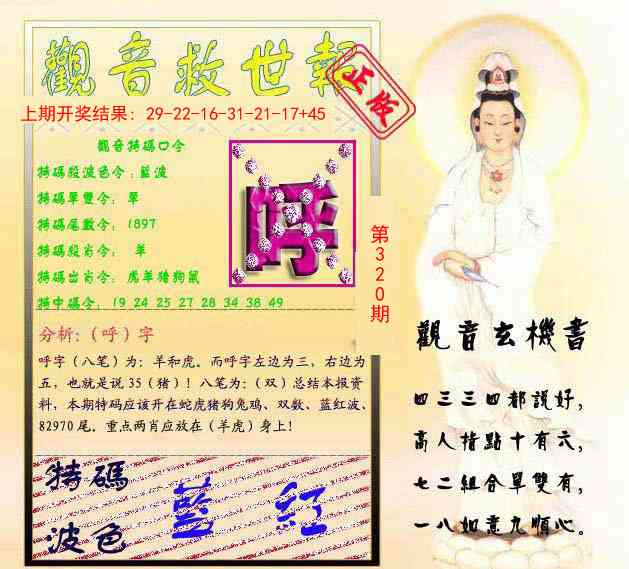 觀音救世報
正版
上期开奖结果：29-22-16-31-21-17+45
觀音特碼口令
特碼殺波色令：藍波
特碼單雙令： 單
特碼尾數令： 1897
特碼殺肖令： 羊
特碼出肖令： 虎羊猪狗鼠
特中碼令： 19 24 25 27 28 34 38 49
呼
第320期
分析:（呼）字
呼字（八笔）为：羊和虎。而呼字左边为三，右边为
五，也就是说 35（猪）！八笔为：（双）总结本报资
料，本期特码应该开在蛇虎猪狗兔鸡、双数、蓝红波、
82970 尾。重点两肖应放在（羊虎）身上！
特碼
波色
藍 紅
觀音玄機書
四三三四都説好，
高人指點十有六，
七二組合單雙有，
一八如意九順心。